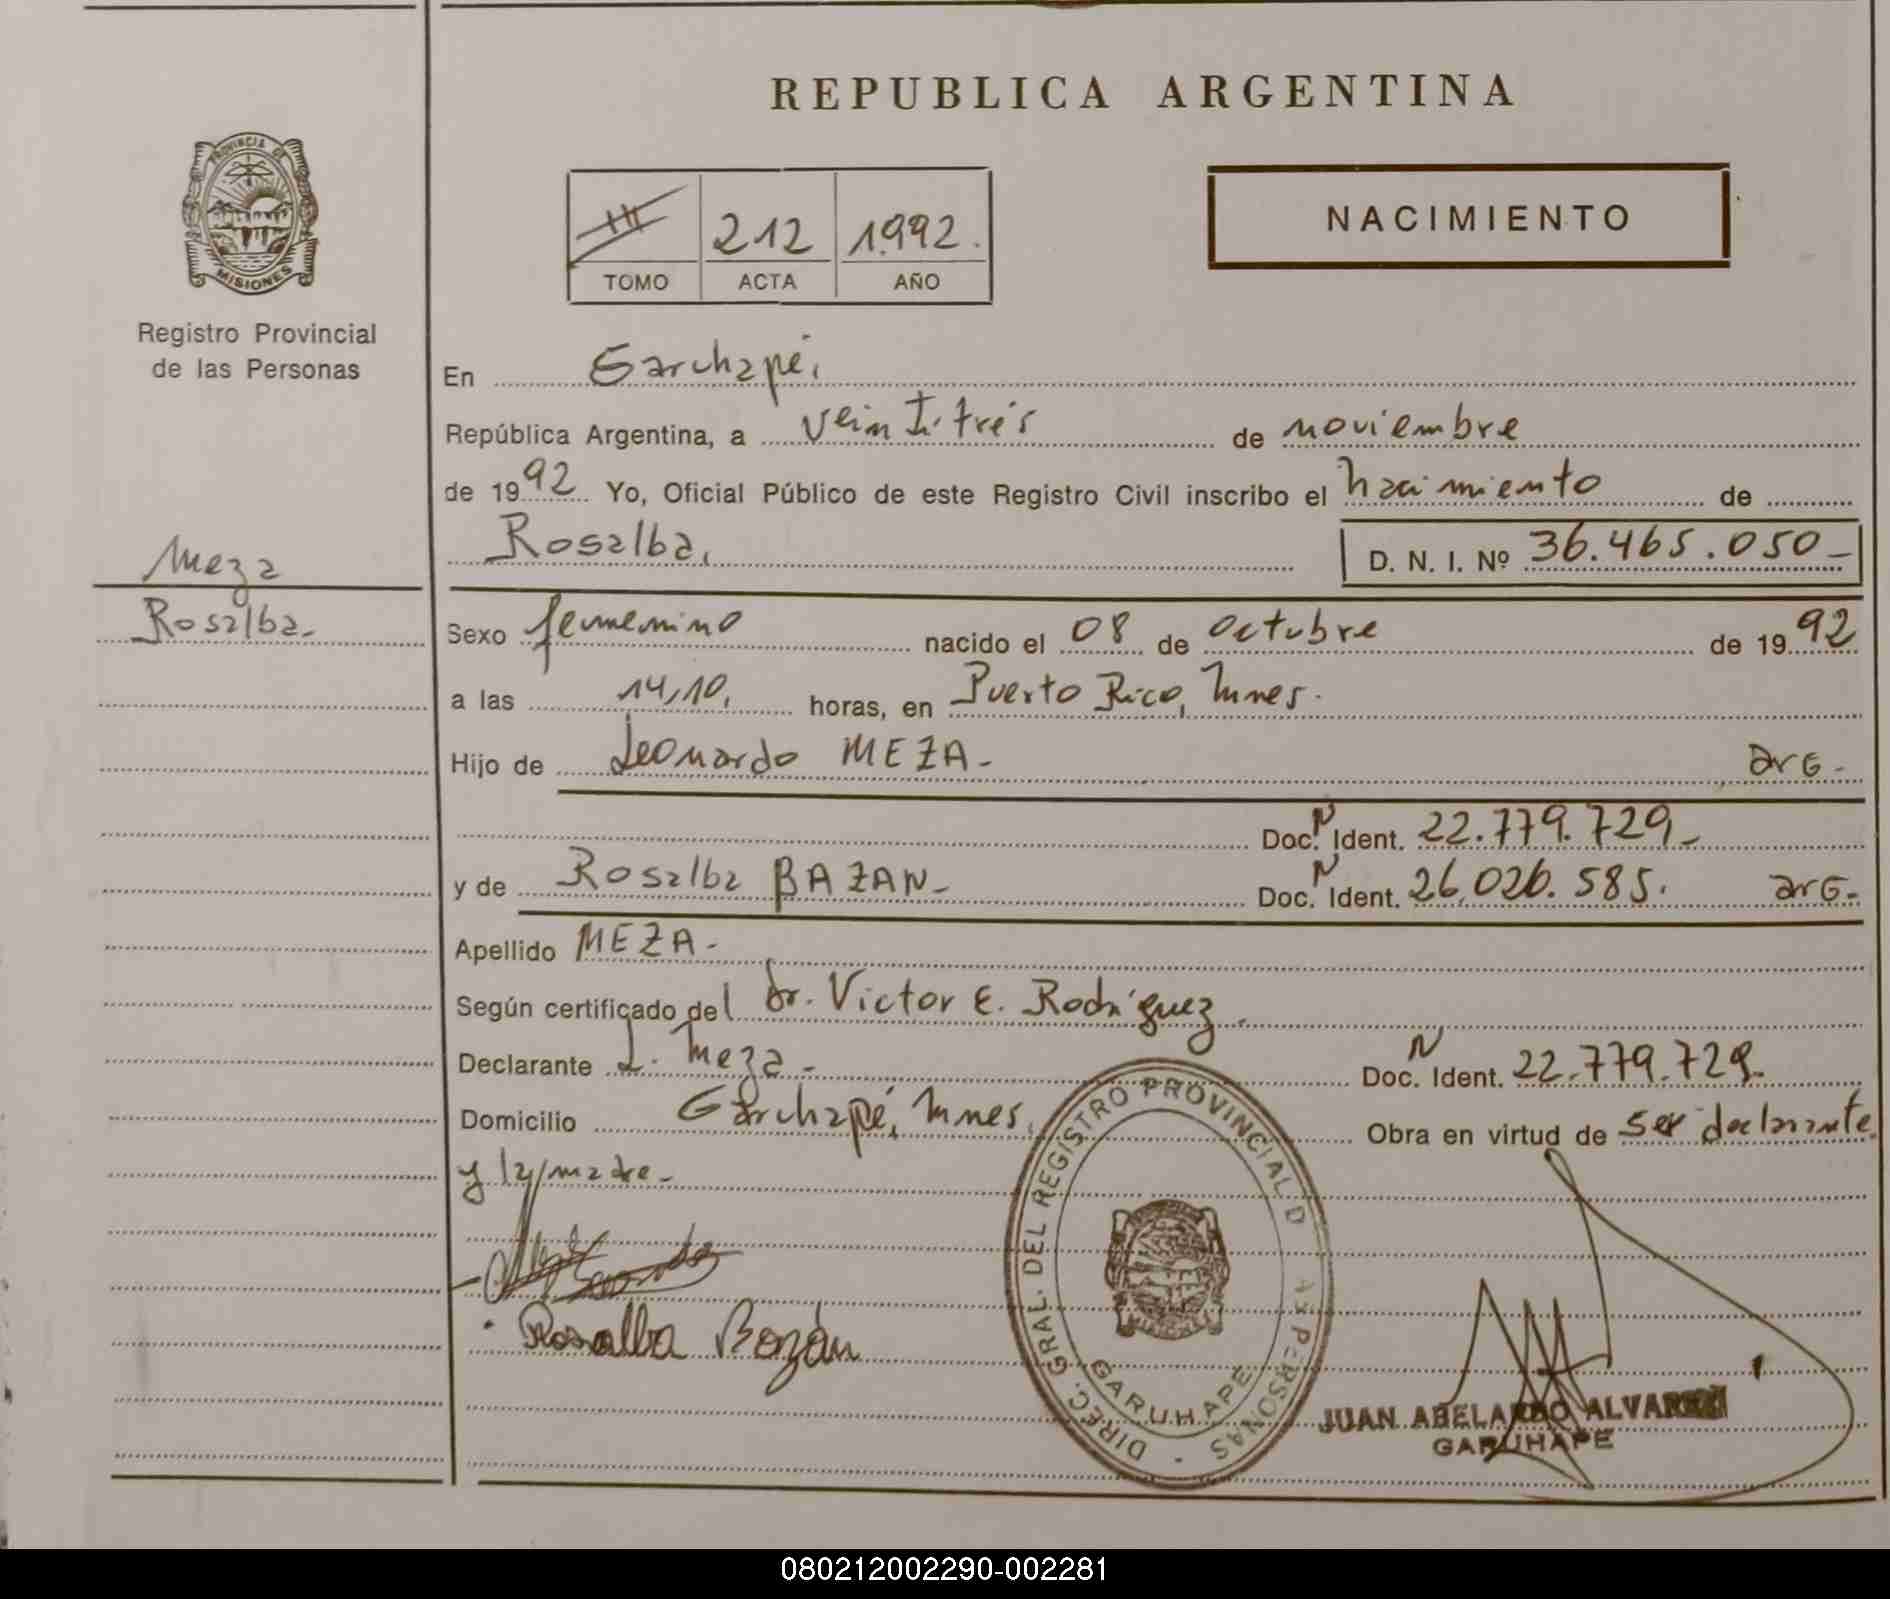 REPUBLICA ARGENTINA
PROVINCIA DE
MISIONES
Registro Provincial
de las Personas
212 1.992.
TOMO ACTA AÑO
NACIMIENTO
En Garuhapé,
República Argentina, a veintitrés de noviembre
de 1992 Yo, Oficial Público de este Registro Civil inscribo el nacimiento de
Rosalba, D. N. I. Nº 36.465.050-
Meza
Rosalba-
Sexo femenino nacido el 08 de octubre de 1992
a las 14,10, horas, en Puerto Rico, Mnes.
Hijo de Leonardo MEZA- arg-
Doc. N Ident. 22.779.729-
y de Rosalba BAZAN- Doc. N Ident. 26.026.585. arg-
Apellido MEZA-
Según certificado del Dr. Victor E. Rodríguez.
Declarante L. Meza- Doc. N Ident. 22.779.729-
Domicilio Garuhapé, Mnes, Obra en virtud de ser declarante
y la madre-
Rosalba Bazán
DIREC. GRAL. DEL REGISTRO PROVINCIAL D AS PERSONAS
GARUHAPE
JUAN ABELARDO ALVAREZ
GARUHAPE
080212002290-002281